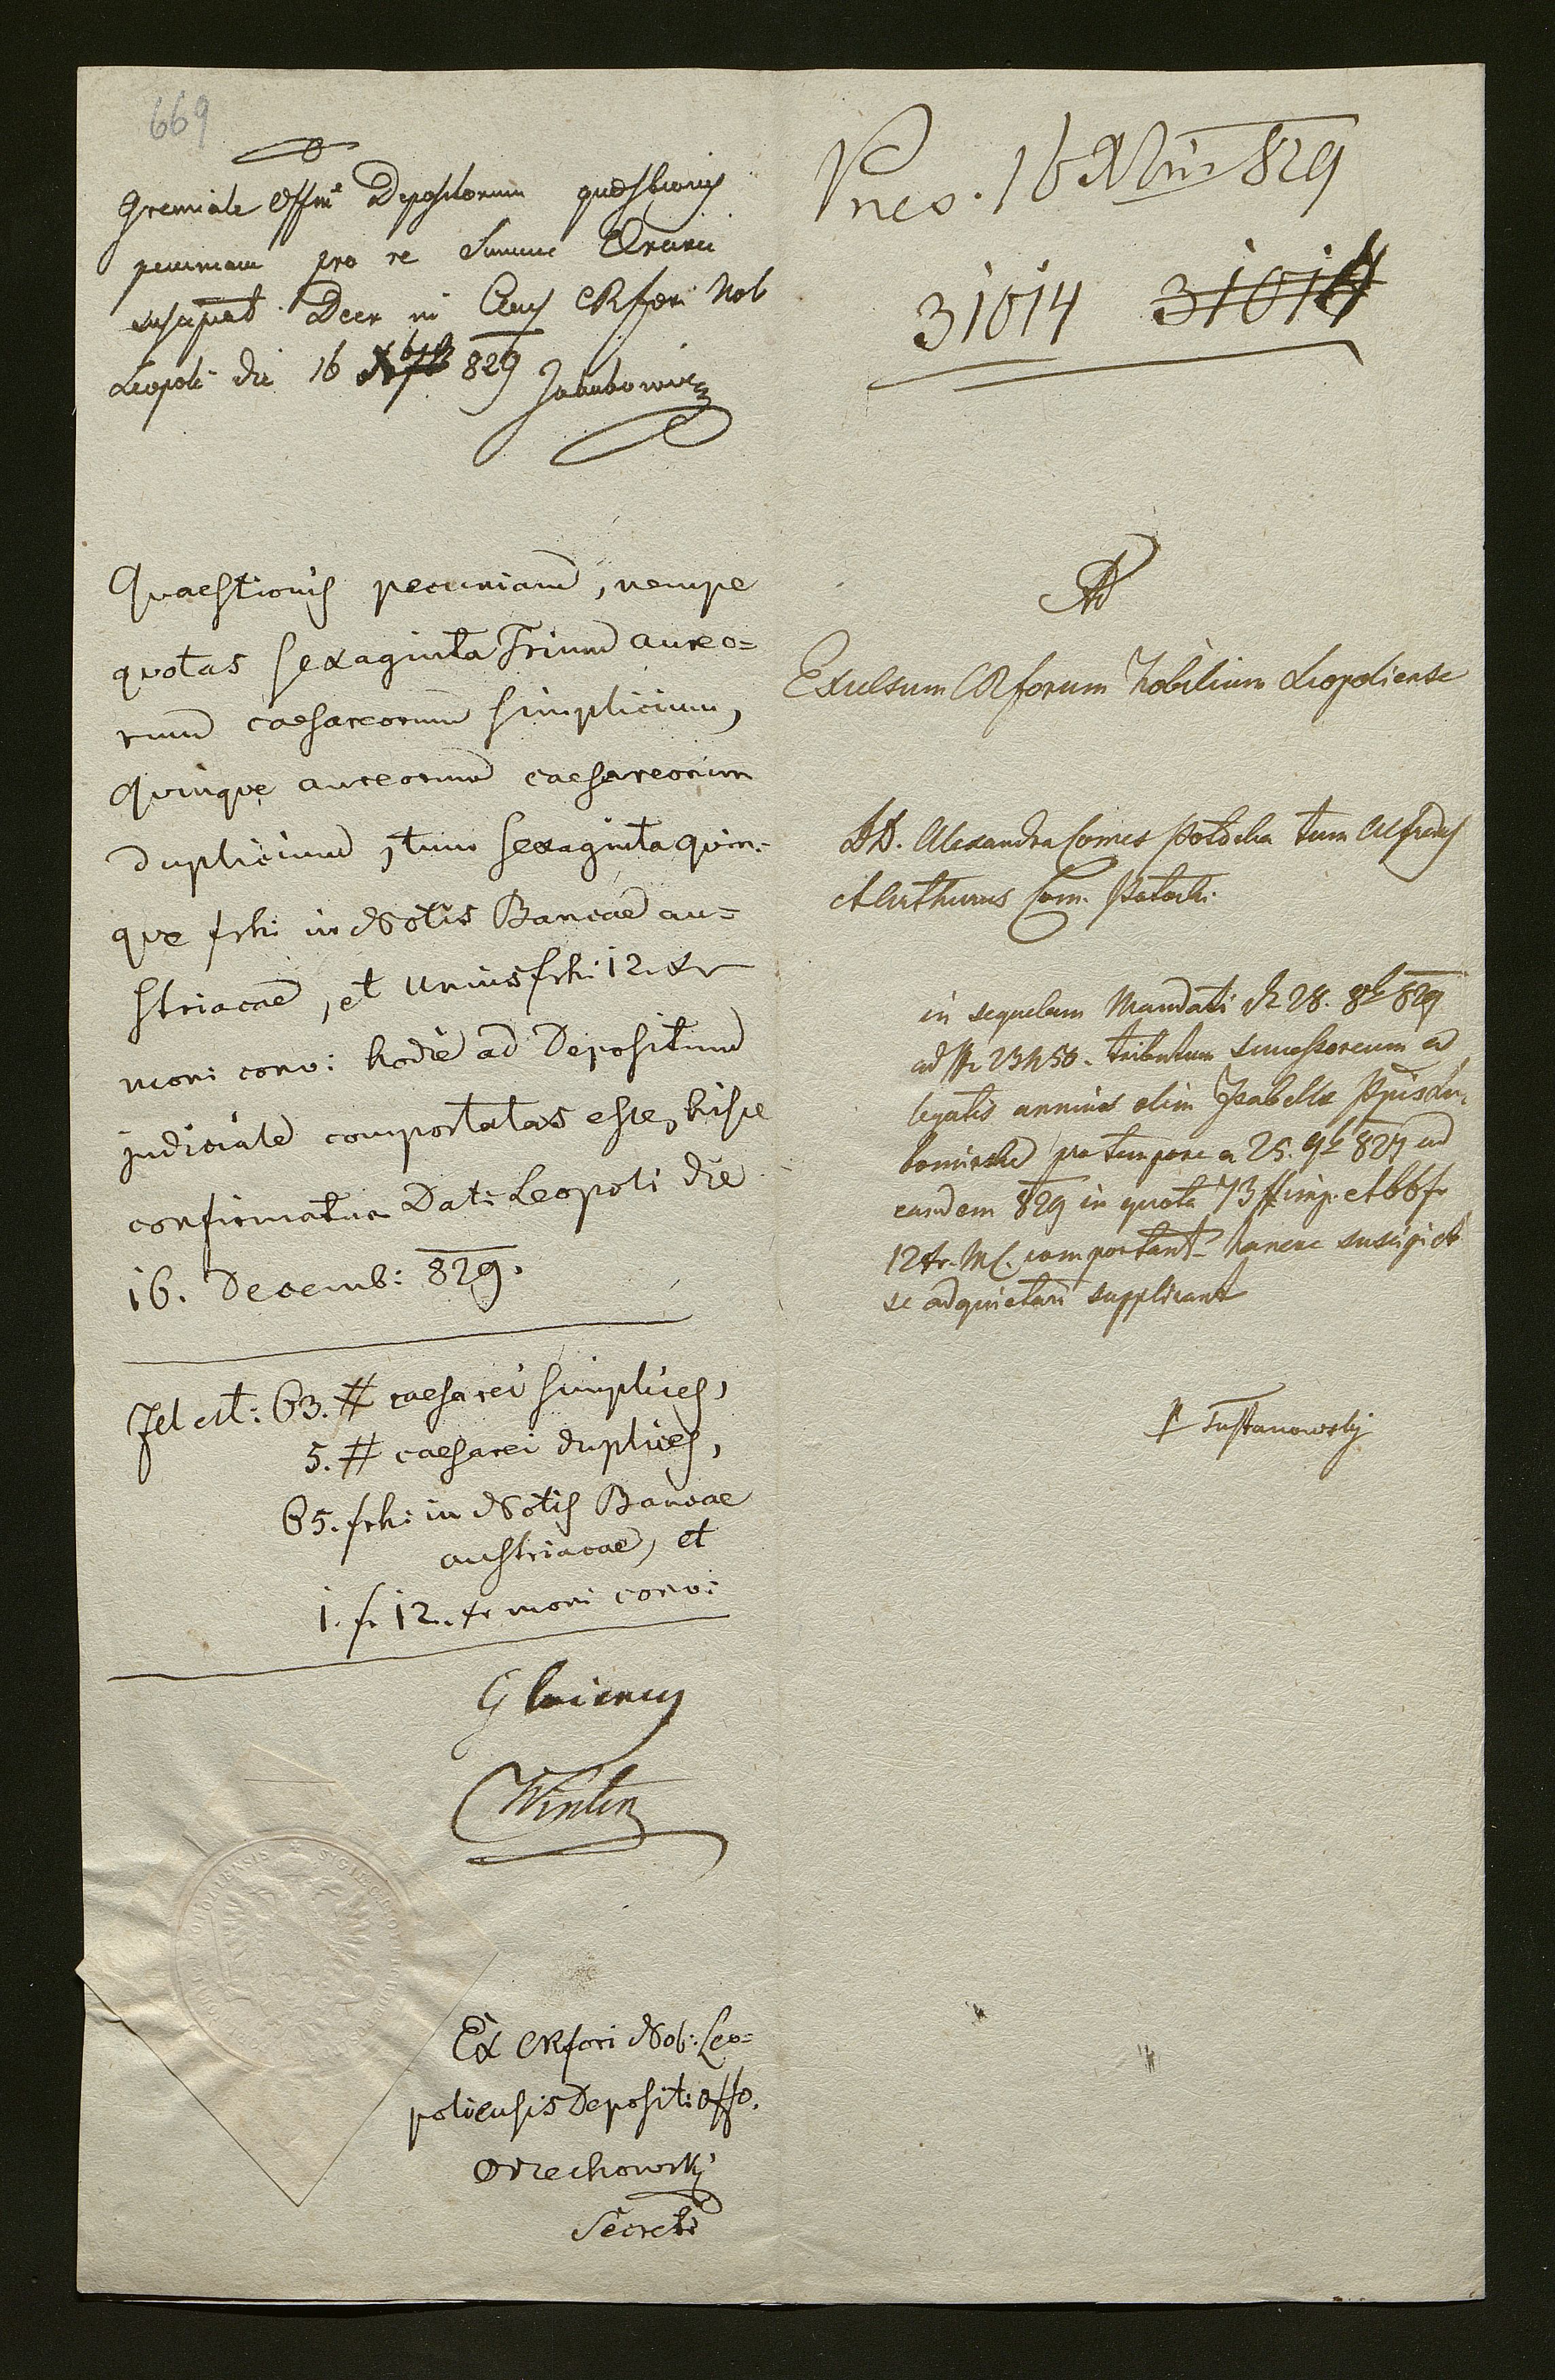 669
Gremiale Offm Depositorum quaestionis
pecuniam pro re Summi Aerarii
suscipiat Decr in CRfori Nob
Leopoli die 16 Xb 829 Jakubowicz
Quaestionis pecuniam, nempe
quotas sexaginta trium aureo=
rum caesareorum simplicium,
quinque aureorum caesareorum
duplicium, tum sexaginta quin=
que frhi in Notis Bancae au=
striacae, et unius frhi 12. xr
moni conv: hodie ad Depositum
judiciale comportatas esse, hisce
confirmatur Dat: Leopoli die
16. Decemb: 829.
Id est: 63. # caesarei simplices,
5. # caesarei duplices,
65. frh: in Notis Bancae
austriacae, et
1. f. 12. xr moni conv:
Winter
SIGILL
Ex CRfori Nob: Leo=
poliensis Deposit: Offo.
Orzechowskj
Secret
Pnes. 16 Xbris 829
31014 31014
Ad
Excelsum CR forum Nobilium Leopoliense
DD. Alexandra Comes Potocka tum Alfredus
et Arthurus Com. Potocki
in sequelam Mandati de 28. 8b 829
ad Nr 23450. tributum successoreum ad
legatis annuis olim Isabellae Ppis Lu=
bomirska pro tempore a 25. 9b 827 ad
eandem 829 in quota 73 # imp. et 66 fr
12 xr. MC. comportant hancce suscipi et
se adquietari supplicant
Tustanowskj